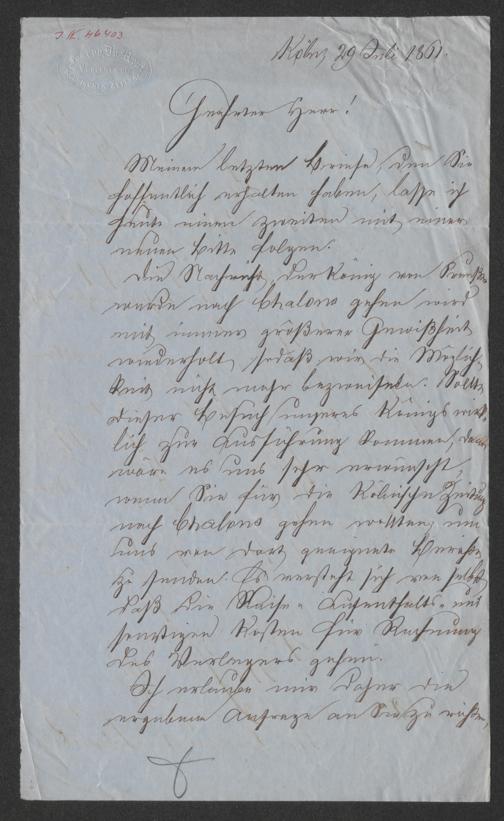 J.N. 46403
Köln, 29 Juli 1861.
Geehrter Herr!
Meinem letzten Briefe, den Sie
hoffentlich erhalten haben, lasse ich
heute einen zweiten mit einer
neuen Bitte folgen.
Die Nachricht, der König von Preußen
werde nach Chalons gehen wird
mit immer größerer Gewißheit
wiederholt, sodaß wir die Möglich-
keit nicht mehr bezweifeln. Sollte
dieser Besuch unseres Königs wirk-
lich zur Ausführung kommen, dann
wäre es uns sehr erwünscht,
wenn Sie für die Kölnische Zeitung
nach Chalons gehen wollten, um
uns von dort geeignete Berichte
zu senden. Es versteht sich von selbst,
daß die Reise- Aufenthalts- und
sonstigen Kosten für Rechnung
des Verlegers gehen.
Ich erlaube mir daher die
ergebene Anfrage an Sie zu richten,